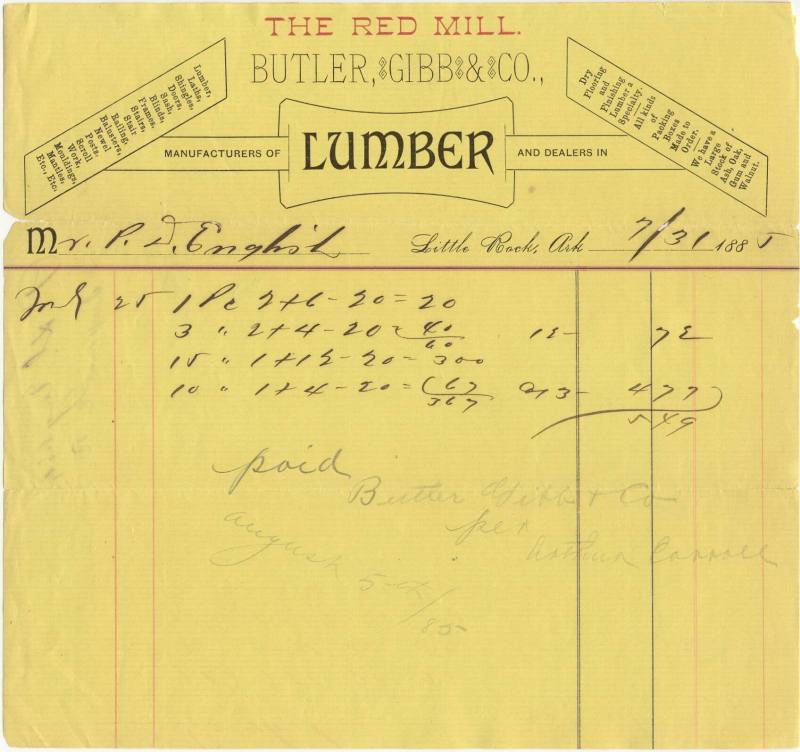 THE RED MILL.
BUTLER, GIBB & CO.,
Lumber,
Laths,
Shingles,
Doors,
Sash,
Blinds,
Frames,
Stairs,
Stair
Railing,
Balusters,
Newel
Posts,
Scroll
Work,
Mouldings,
Mantles,
Etc., Etc.
MANUFACTURERS OF LUMBER AND DEALERS IN
Dry
Flooring
and
Finishing
Lumber a
Specialty.
All kinds
of
Packing
Boxes
Made to
Order.
We have a
Large
Stock of
Ash, Oak,
Gum and
Walnut.
Mr. P. D. English Little Rock, Ark 7/31 1885
July 25 1 Pc 2+6-20=20
3 " 2+4-20=40
60 12- 72
15 " 1+12-20=300
10 " 1+4-20=(67
367 @13- 477
549
paid
Butler Gibb & Co
per
August Arthur Carroll
5th/85